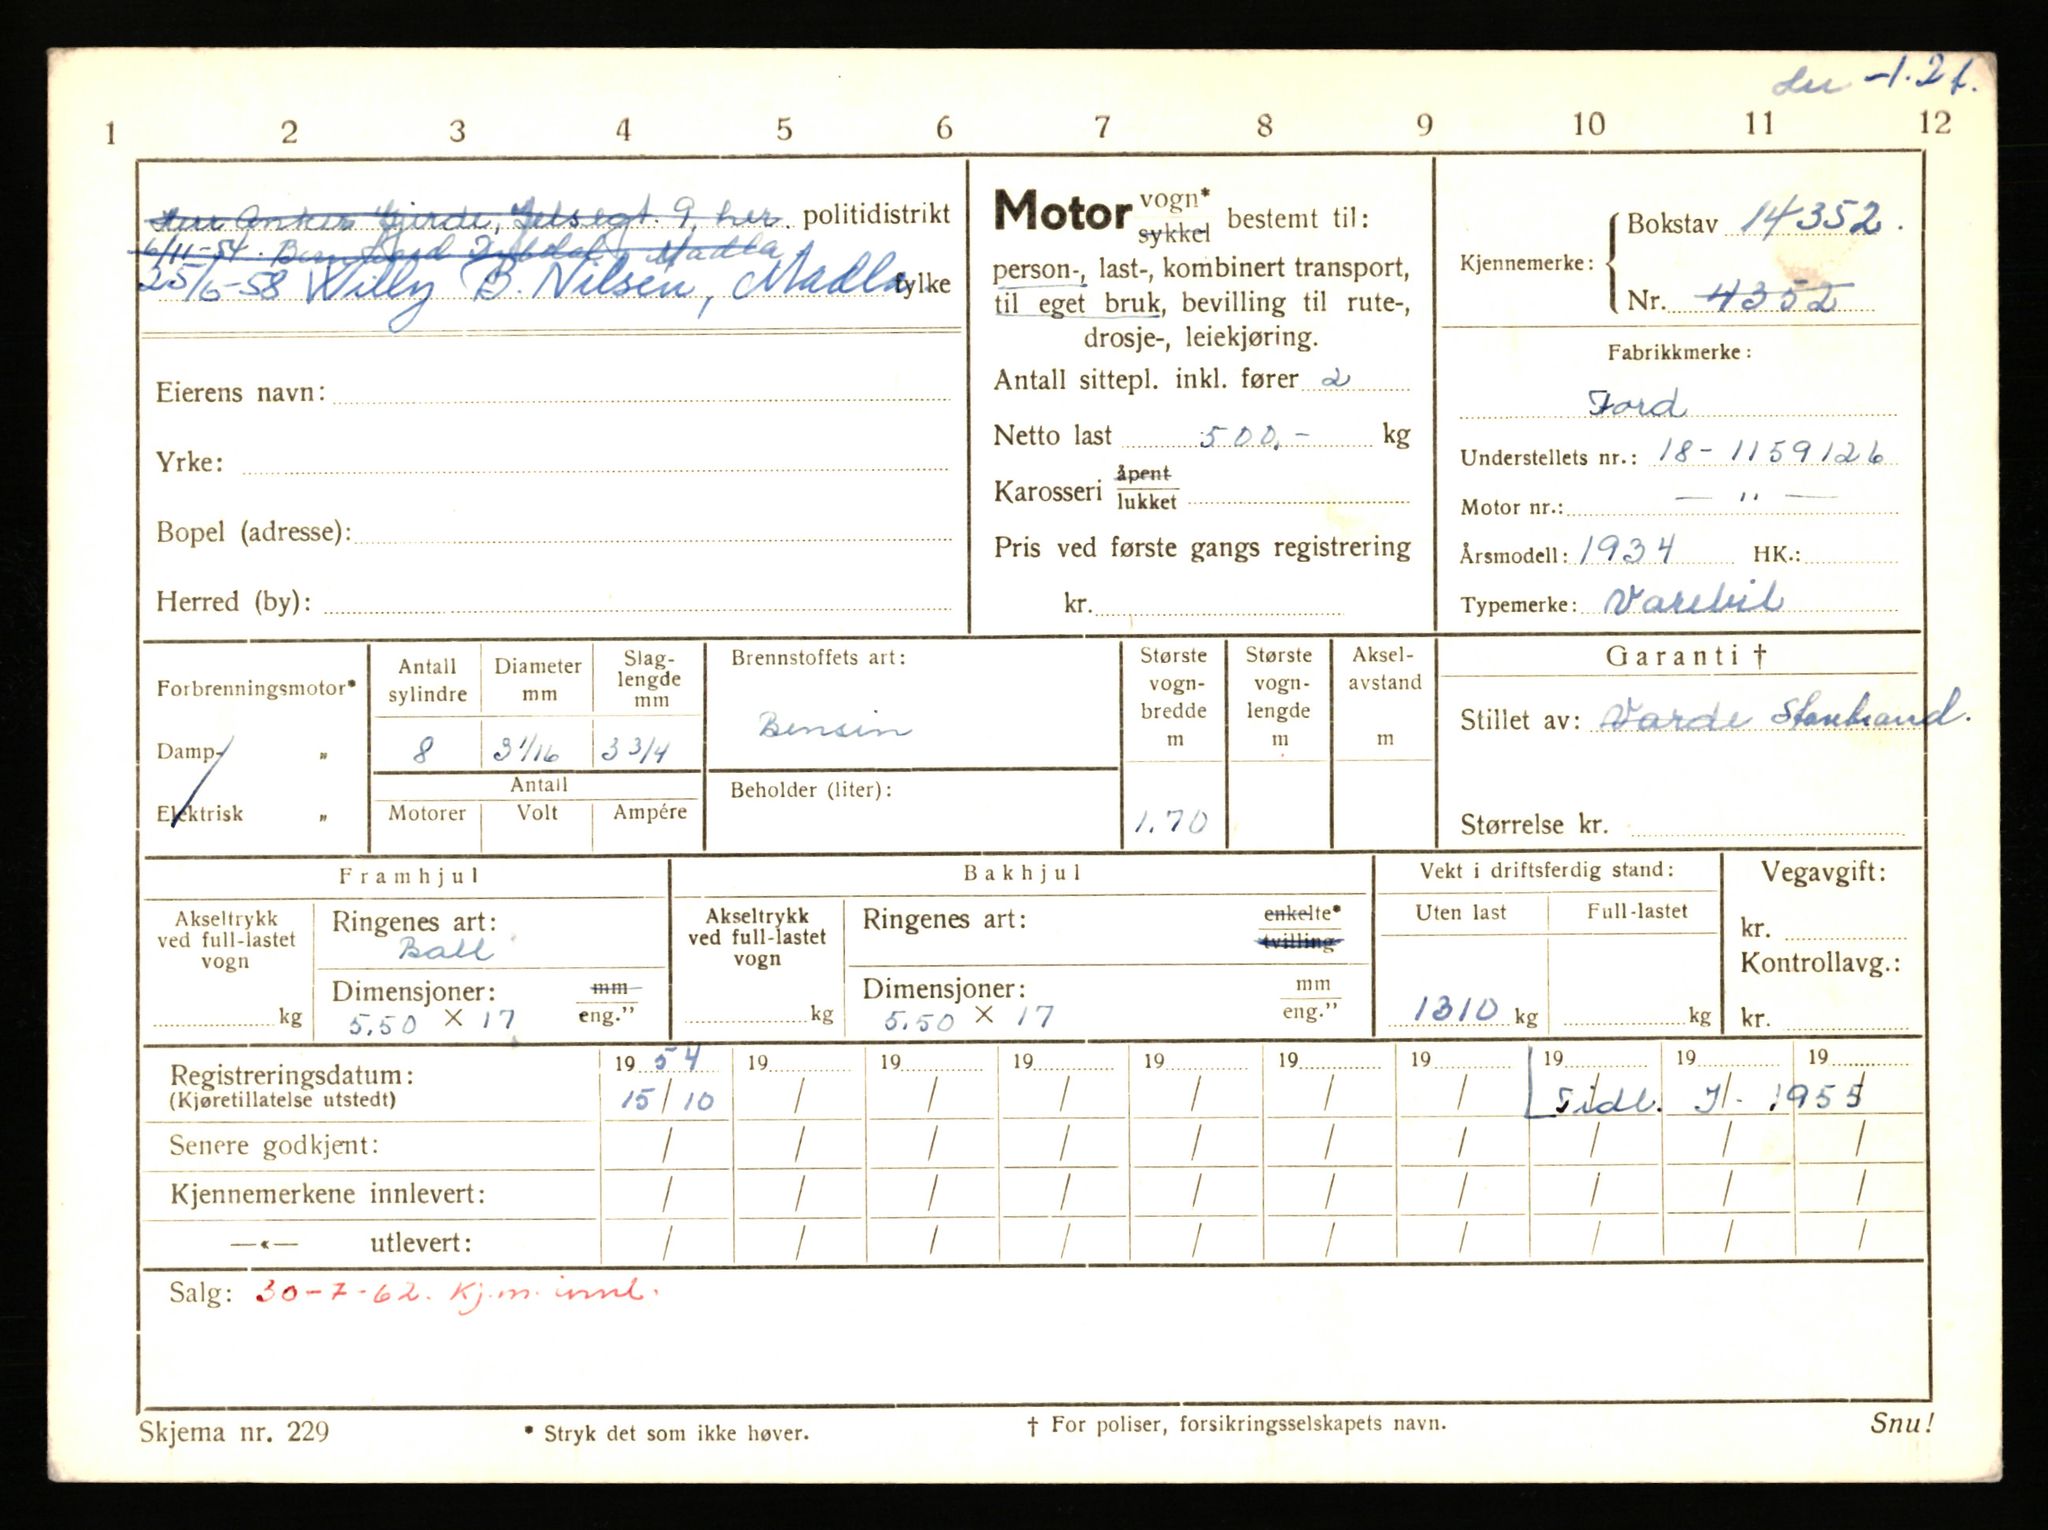 -1.21.
1 2 3 4 5 6 7 8 9 10 11 12
Herr Anker Gjerde, Jelsegt. 9, her. politidistrikt
6/11-54. Madla
25/6-58 Willy B. Nilsen, Madla fylke
Eierens navn:
Yrke:
Bopel (adresse):
Herred (by):
Motor vogn* sykkel bestemt til:
person-, last-, kombinert transport,
til eget bruk, bevilling til rute-,
drosje-, leiekjøring.
Antall sittepl. inkl. fører 2
Netto last 500.- kg
Karosseri åpent lukket
Pris ved første gangs registrering
kr.
Kjennemerke: Bokstav 14352.
Nr. 4352
Fabrikkmerke:
Ford
Understellets nr.: 18-1159126
Motor nr.: — " —
Årsmodell: 1934 HK.:
Typemerke: Varebil
Forbrenningsmotor*
Damp- „
Elektrisk „
Antall sylindre
8
Diameter mm
3 1/16
Slaglengde mm
3 3/4
Antall
Motorer Volt Ampére
Brennstoffets art:
Bensin
Beholder (liter):
Største vognbredde m
1.70
Største vognlengde m
Akselavstand m
Garanti †
Stillet av: Varde Storebrand.
Størrelse kr.
Framhjul
Akseltrykk ved full-lastet vogn
kg
Ringenes art:
Ball
Dimensjoner: mm eng.”
5.50 × 17
Bakhjul
Akseltrykk ved full-lastet vogn
kg
Ringenes art: enkelte* tvilling
Dimensjoner: mm eng.”
5.50 × 17
Vekt i driftsferdig stand:
Uten last Full-lastet
1310 kg kg
Vegavgift:
kr.
Kontrollavg.:
kr.
Registreringsdatum: 19 54 19 19 19 19 19 19 19 19 19
(Kjøretillatelse utstedt) 15/10 / / / / / / Tidl. 1955
Senere godkjent: / / / / / / / / / /
Kjennemerkene innlevert: / / / / / / / / / /
—«— utlevert: / / / / / / / / / /
Salg: 30-7-62. Kj.m. innl.
Skjema nr. 229 * Stryk det som ikke høver. † For poliser, forsikringsselskapets navn. Snu!